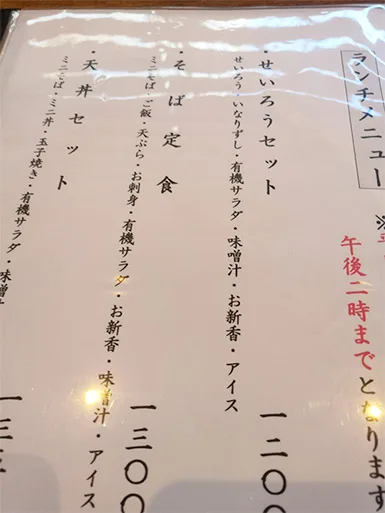 ランチメニュー
午後二時までとなります
・せいろうセット
せいろう・いなりずし・有機サラダ・味噌汁・お新香・アイス
一二〇〇
・そば定食
ミニそば・ご飯・天ぷら・お刺身・有機サラダ・お新香・味噌汁・アイス
一三〇〇
・天丼セット
ミニそば・ミニ丼・玉子焼き・有機サラダ・味噌汁